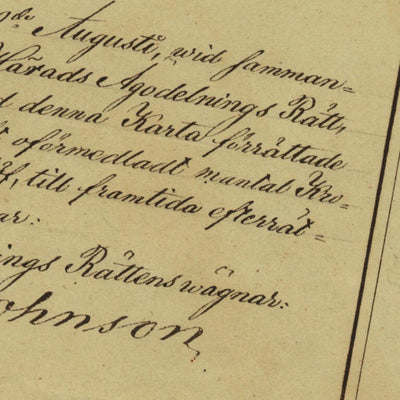 de Augusti, wid samman=
Härads Ägodelnings Rätt,
denna Karta förrättade
oförmedladt mantal Kro=
till framtida efterrät=
ar:
ings Rättens wägnar:
ohnson